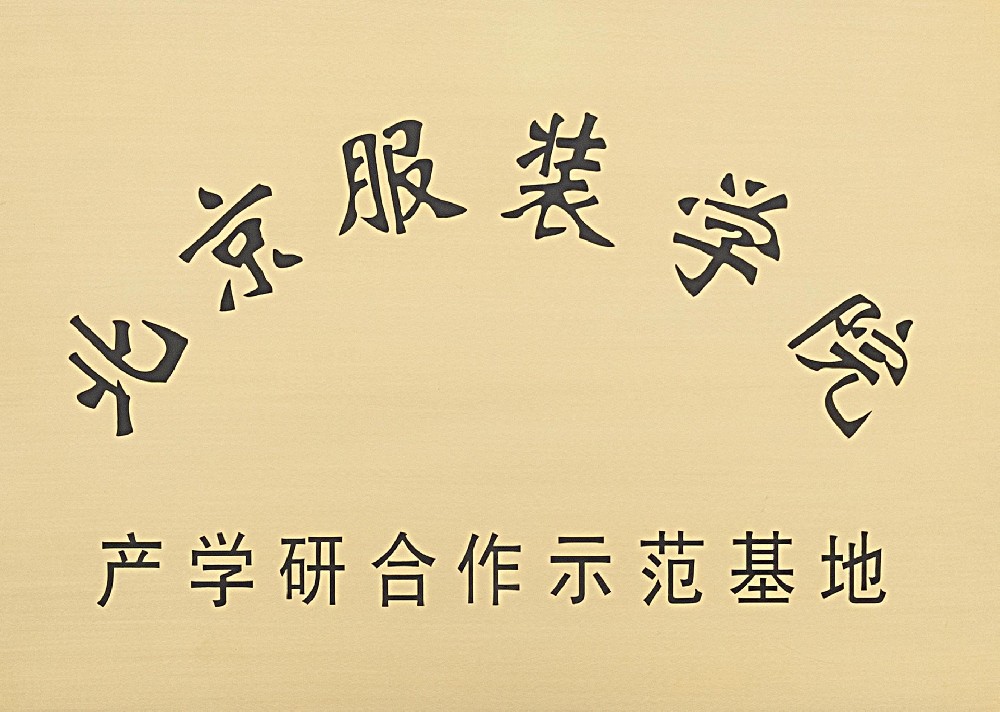 北京服装学院
产学研合作示范基地